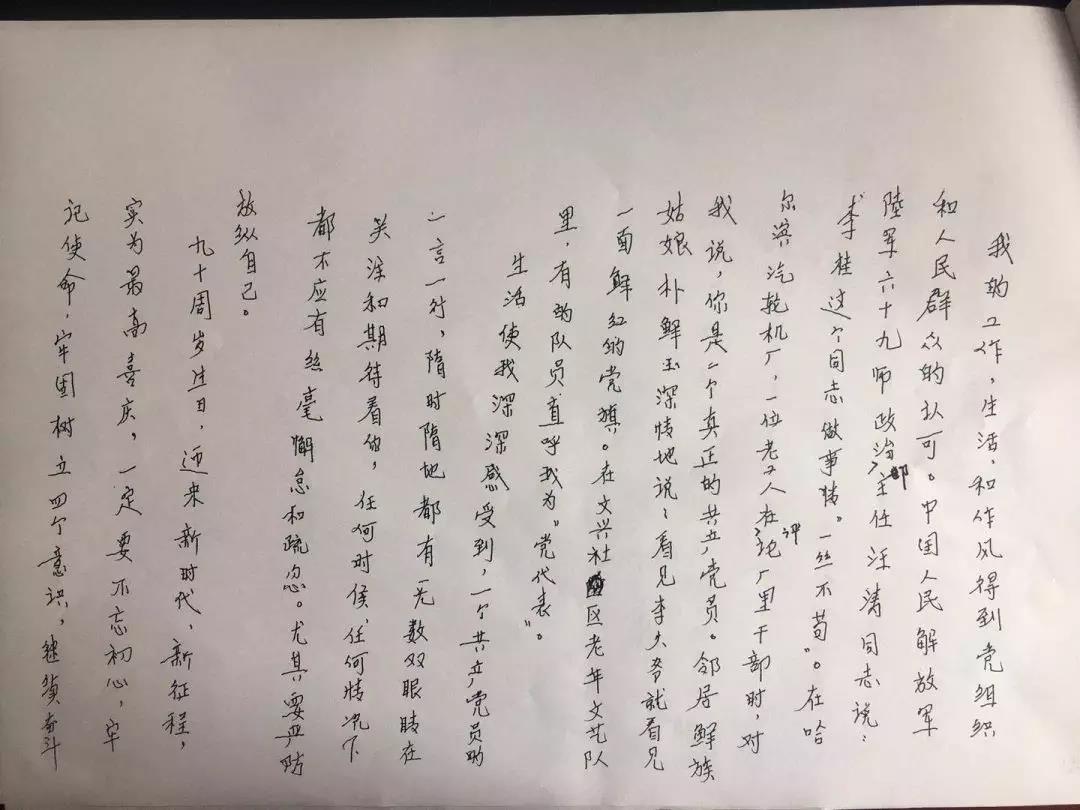 我的工作，生活，和作风得到党组织
和人民群众的认可。中国人民解放军
陸军六十九师政治部主任汪涛同志说：
“李桂这个同志做事情。一丝不苟”。在哈
尔滨汽轮机厂，一位老工人在评论厂里干部时，对
我说，你是一个真正的共产党员。邻居鲜族
姑娘朴鲜玉深情地说：看见李大爷就看见
一面鲜红的党旗。在文兴社区老年文艺队
里，有的队员直呼我为“党代表”。
生活使我深深感受到，一个共产党员的
一言一行，隋时隋地都有无数双眼睛在
关注和期待着他，任何时候、任何情况下
都不应有丝毫懈怠和疏忽。尤其要严防
放纵自己。
九十周岁生日，迎来新时代，新征程，
实为最高喜庆，一定要不忘初心，牢
记使命，牢固树立四个意识，继续奋斗